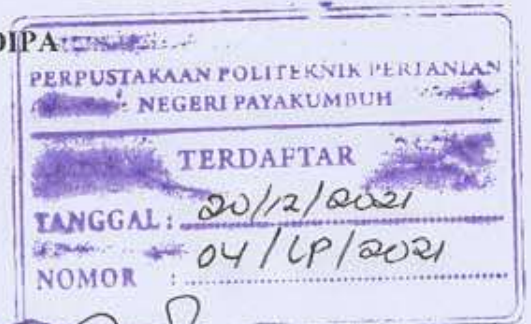 DIPA
PERPUSTAKAAN POLITEKNIK PERTANIAN
NEGERI PAYAKUMBUH
TERDAFTAR
TANGGAL : 20/12/2021
NOMOR : 04/LP/2021